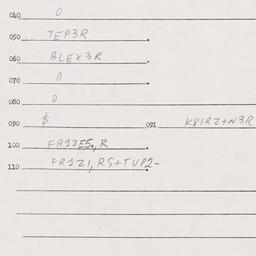 040 0
050 TEP3R
060 BLEX3R
070 0
080 0
090 $ 091 K8IRZ+N3R
100 FR1ZE5., R
110 FR1Z1, RS+TUP2-